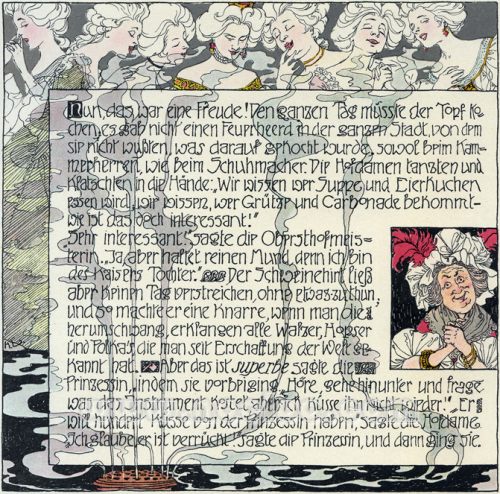 Nun, das war eine Freude! Den ganzen Tag müsste der Topf ko-
chen, es gab nicht einen Feuerheerd in der ganzen Stadt, von dem
sie nicht wußten, was darauf gekocht wurde, sowol beim Kam-
merherren, wie beim Schuhmacher. Die Hofdamen tanzten und
klatschten in die Hände: „Wir wissen wer Suppe und Eierkuchen
essen wird, wir wissen, wer Grütze und Carbonade bekommt-
wie ist das doch interessant!"
Sehr interessant!" sagte die Obersthofmeis-
terin. „Ja, aber haltet reinen Mund, denn ich bin
des Kaisers Tochter. Der Schweinehirt ließ
aber keinen Tag verstreichen, ohne etwas zu thun,
und so machte er eine Knarre, wenn man die
herumschwang, erklangen alle Walzer, Hopser
und Polka's die man seit Erschaffung der Welt ge-
kannt hat. Aber das ist superbe sagte die
Prinzessin, indem sie vorbeiging. „Höre, gehe hinunter und frage
was das Instrument kostet, aber ich küsse ihn nicht wieder!" „Er
will hundert Küsse von der Prinzessin haben," sagte die Hofdame.
„Ich glaube er ist verrückt! sagte die Prinzessin, und dann ging sie.